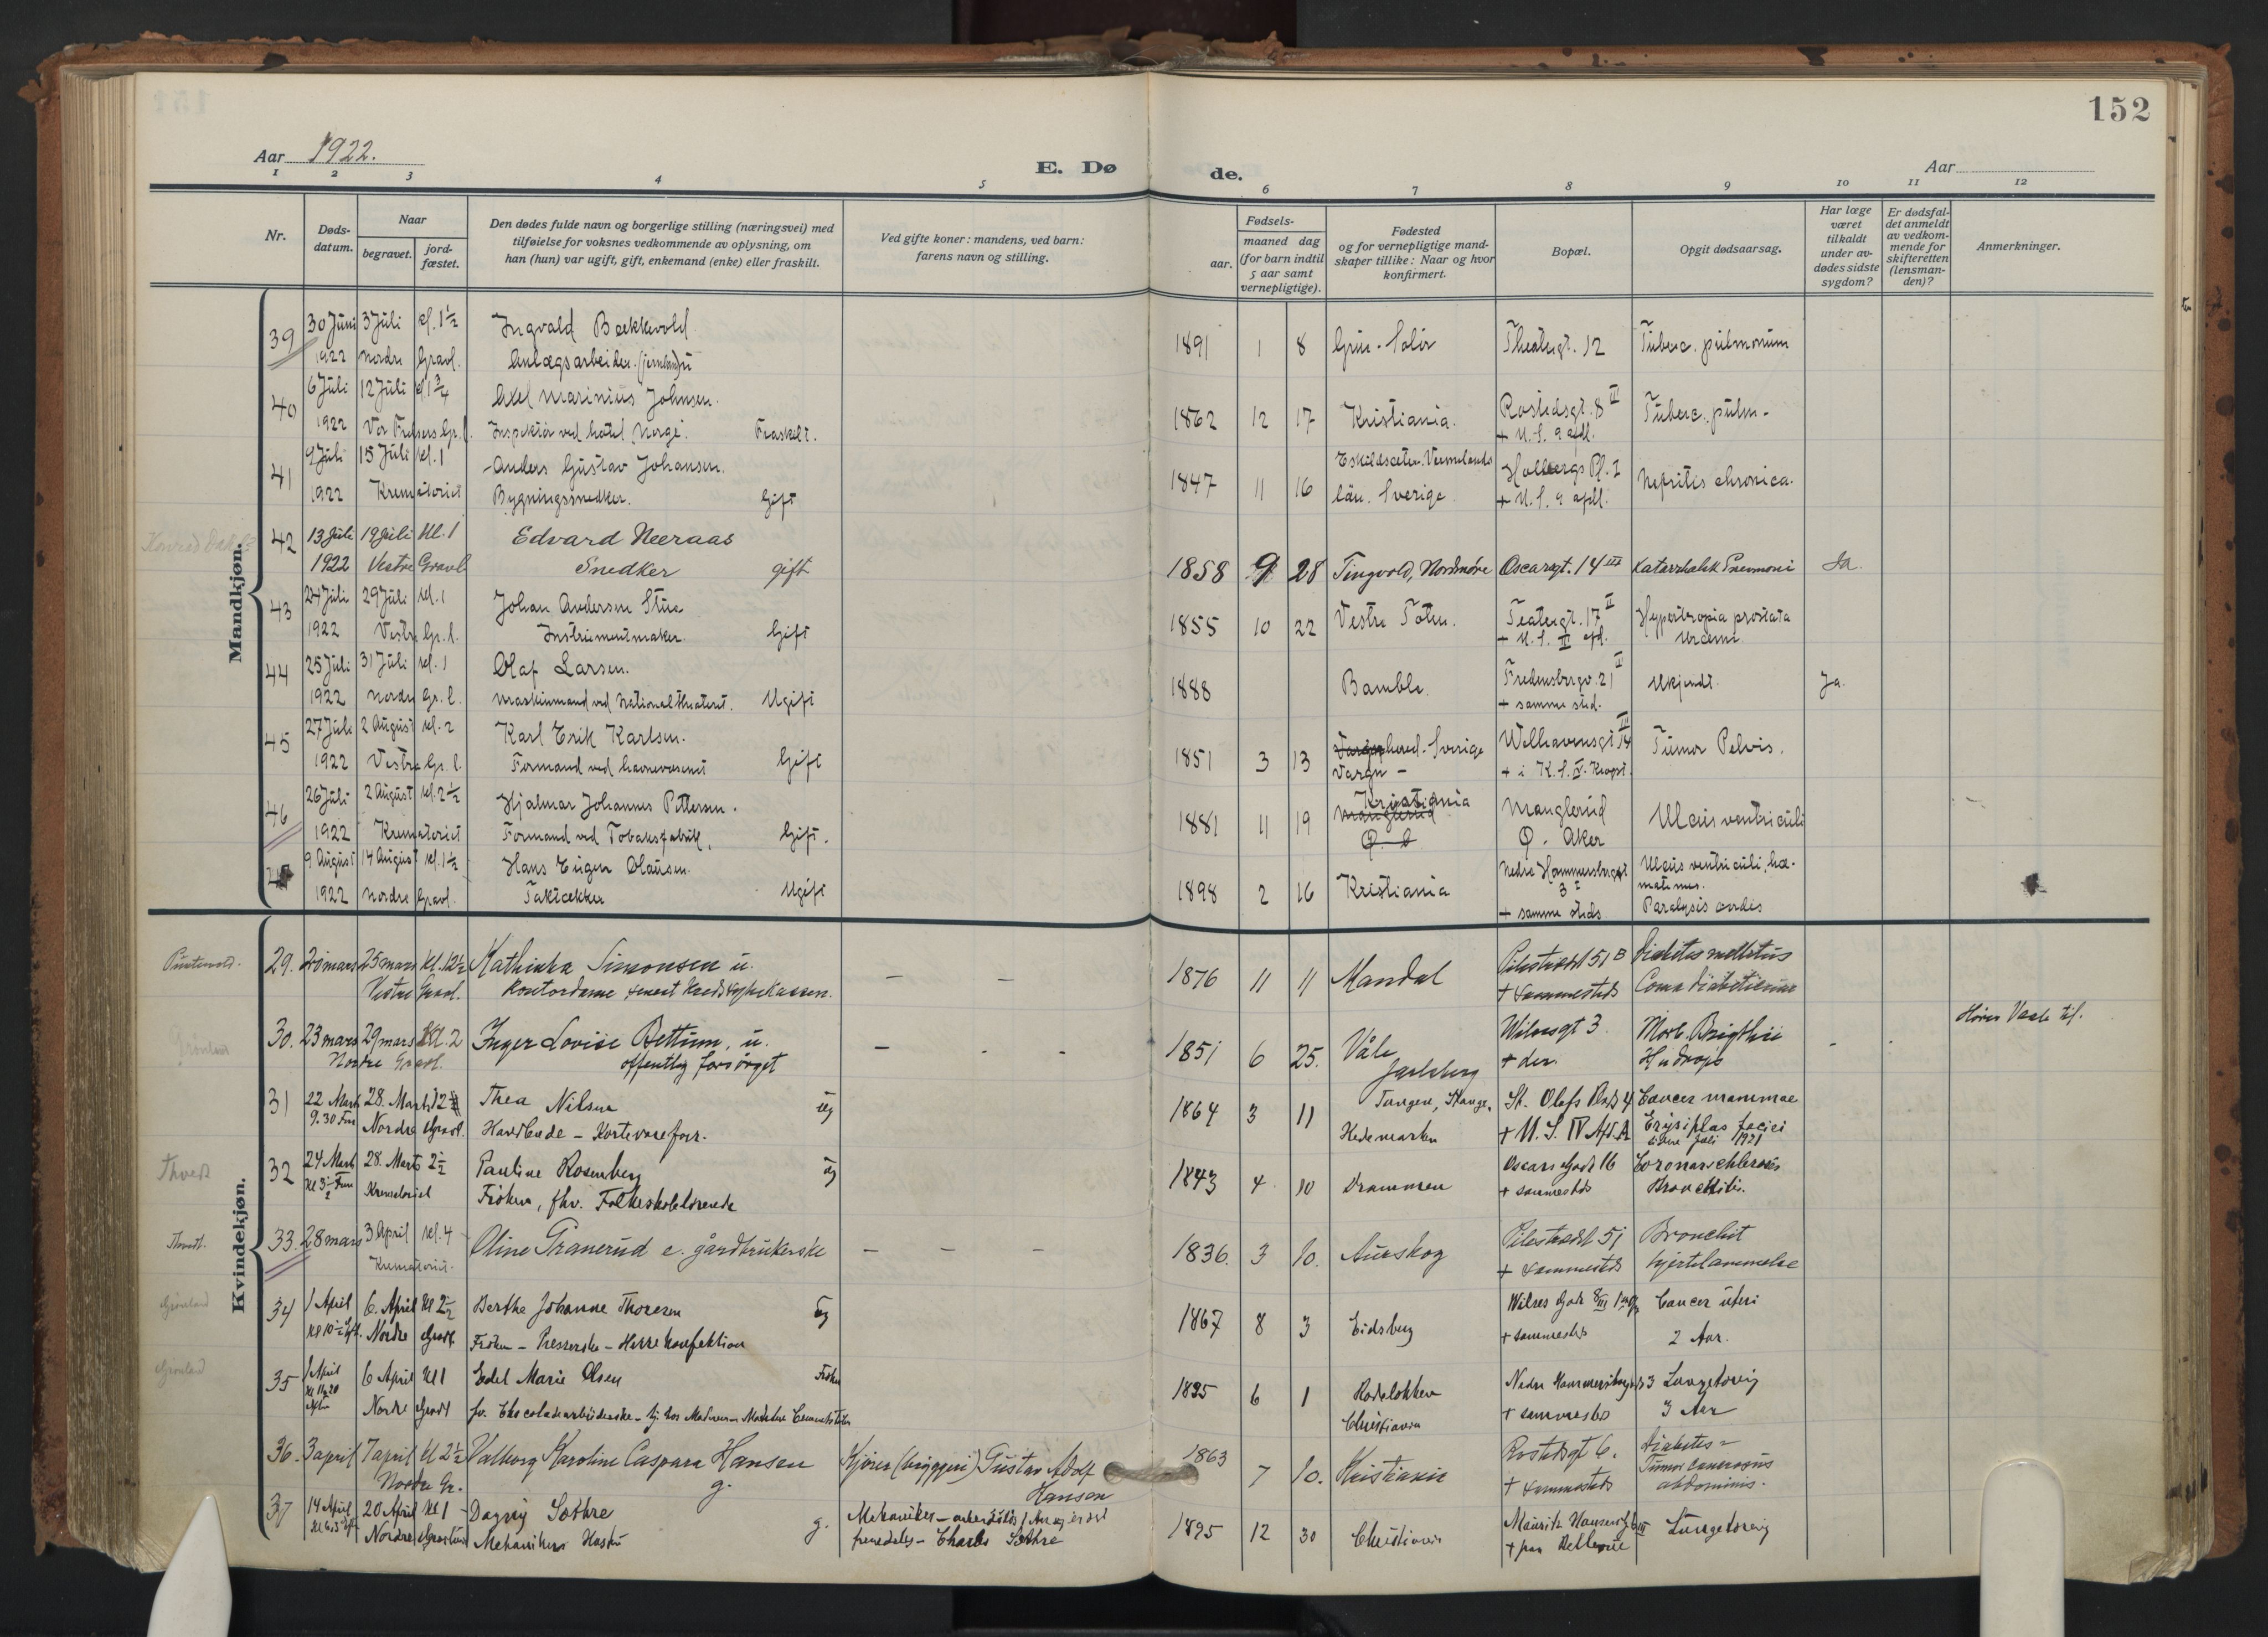 152
Aar 1922.
E. Dø de.
Aar
1 2 3 4 5 6 7 8 9 10 11 12
Nr.
Døds-datum.
Naar
begravet.
jord-fæstet.
Den dødes fulde navn og borgerlige stilling (næringsvei) med
tilføielse for voksnes vedkommende av oplysning, om
han (hun) var ugift, gift, enkemand (enke) eller fraskilt.
Ved gifte koner: mandens, ved barn:
farens navn og stilling.
Fødsels-
aar.
maaned dag
(for barn indtil
5 aar samt
vernepligtige).
Fødested
og for vernepligtige mand-
skaper tillike: Naar og hvor
konfirmert.
Bopæl.
Opgit dødsaarsag.
Har læge
været
tilkaldt
under av-
dødes sidste
sygdom?
Er dødsfal-
det anmeldt
av vedkom-
mende for
skifteretten
(lensman-
den)?
Anmerkninger.
Mandkjøn.
39 30 Juni 3 Juli kl. 1½ Ingvald Bækkevold 1891 1 8 Grue - Solør Theatergt. 12 Tuberc. pulmonum
1922 Nordre Gravl. Anlægsarbeider
40 6 Juli 12 Juli kl. 1¾ Axel Marinius Johnsen. 1862 12 17 Kristiania. Rostedsgt. 8 II Tuberc. pulm.
1922 Vor Frelsers Gr. l. Inspektør ved hotel Norge. Fraskilt. + U. S. 9 afdl.
41 9 Juli 15 Juli kl. 1 Anders Gustav Johansen. 1847 11 16 Vermelands Holbergs Pl. 2 Nefritis chronica.
1922 Krematoriet Bygningssnedker. Gift län. Sverige. + U. S. 9 afdl.
42 13 Juli 19 Juli Kl. 1 Edvard Neeraas
1922 Vestre Gravl Snedker gift 1858 9 28 Tingvold, Nordmøre Oscarsgt. 14 III Katarrhalsk Pnevmoni Ja.
43 24 Juli 29 Juli kl. 1 Johan Andersen Stua 1855 10 22 Vestre Toten. Teatergt. 17 II Hypertropia prostata
1922 Vestre Gr. l. Instrumentmaker. Gift + U. S. II afd. Uræmi
44 25 Juli 31 Juli kl. 1 Olaf Larsen. 1888 Bamble. Fredensborgv. 21 II Ukjendt. Ja.
1922 Nordre Gr. l. Maskinmand ved Nationaltheatret. Ugift + samme sted.
45 27 Juli 2 August kl. 2 Karl Erik Karlsen. 1851 3 13 hered. Sverige Welhavensgt. 14 III Tumor Pelvis.
1922 Vestre Gr. l. Formand ved havnevæsenet Gift Vargn - + i K. S.
46 26 Juli 2 August kl. 2½ Hjalmar Johannes Pettersen. 1881 11 19 Kristiania Manglerud Ulcus ventriculi
1922 Krematoriet Formand ved Tobaksfabrik. Gift. Manglerud Ø. Aker
9 August 14 August kl. 1½ Hans Eugen Olausen. 1898 2 16 Kristiania Nedre Hammersborggt 3 Ulcus ventriculi, hæ-
1922 Nordre Gravl. Taktækker Ugift + samme steds. matemes.
Paralysis cordis
Kvindekjøn.
29. 20 mars 25 mars kl. 12½ Kathinka Simonsen u. 1876 11 11 Mandal Pilestrædet 51 B Diabetes mellitus
Vestre Gravl. Kontordame + samesteds Coma diabeticum
Grønland
30. 23 mars 29 mars Kl. 2 Inger Lovise Bettum, u. 1851 6 25. Våle Wilsesgt 3. Morb. Brigthii
Nordre Gravl. offentlig forsørget Jarlsberg + der. Hydrops Hører Vaale til.
31 22 Marts 28. Marts Thea Nilsen ug 1864 3 11 Tangen, Stange, St. Olafs Plads 4 Cancer mammae
9.30 Fm Nordre Gravl. Handlende - Kortevareforr. Hedemarken + U. S. IV Afd. A Erysiplas faciei
siden Juli 1921
Thvedt
32 24 Marts 28. Marts 2½ Pauline Rosenberg ug 1843 4 10 Drammen Oscars Gade 16 Coronarschlerosis
Kl 3½ Fm Krematoriet Frøken, fhv. Folkeskolelærerinde + sammesteds Bronchitis.
Thvedt.
33. 28 mars 3 April kl. 4 Oline Granerud e. gårdbrukerske 1836. 3 10. Aurskog Pilestrædet 51 Bronchit
Krematoriet. + sammesteds hjertelammelse
Grønland
34 1 April 6. April Kl 2½ Berthe Johanne Thoresen ug 1867 8 3 Eidsberg Wilses Gade 8 III Cancer uteri
Nordre Gravl. Frøken - Presserske - Herrekonfektion + sammesteds 2 Aar.
Grønland
35 1 April 6 April Kl 1 Edel Marie Olsen Frøken 1895 6 1 Rodeløkken Nedre Hammersborggade 3 Lungetæring
Nordre Gravl fv. Chocoladearbeiderske Christiania + sammesteds 3 Aar
36. 3 april 7 april kl 2½ Valborg Karoline Caspara Hansen Kjører (bryggeri) Gustav Adolf 1863 7 10. Kristiania Rostedsgt 6. Diabetes
Nordre Gr. g. Hansen + sammesteds Tumor cancrosus
abdominis.
37 14 April 20 April Kl 1 Dagny Sæthre g. Mekaniker 1895 12 30 Christiania Mauritz Hansens G. 6 III Lungetæring
Nordre Gravlund Mekanikers Hustru Charles Sæthre + paa Bellevue